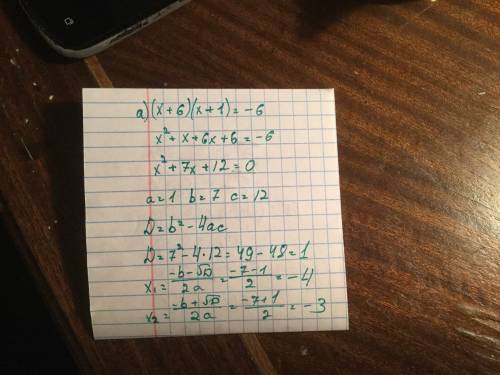 а) (x+6)(x+1)=-6
x²+x+6x+6=-6
x²+7x+12=0
a=1 b=7 c=12
D=b²-4ac
D=7²-4·12=49-48=1
x₁=(-b-√D)/2a=(-7-1)/2=-4
x₂=(-b+√D)/2a=(-7+1)/2=-3